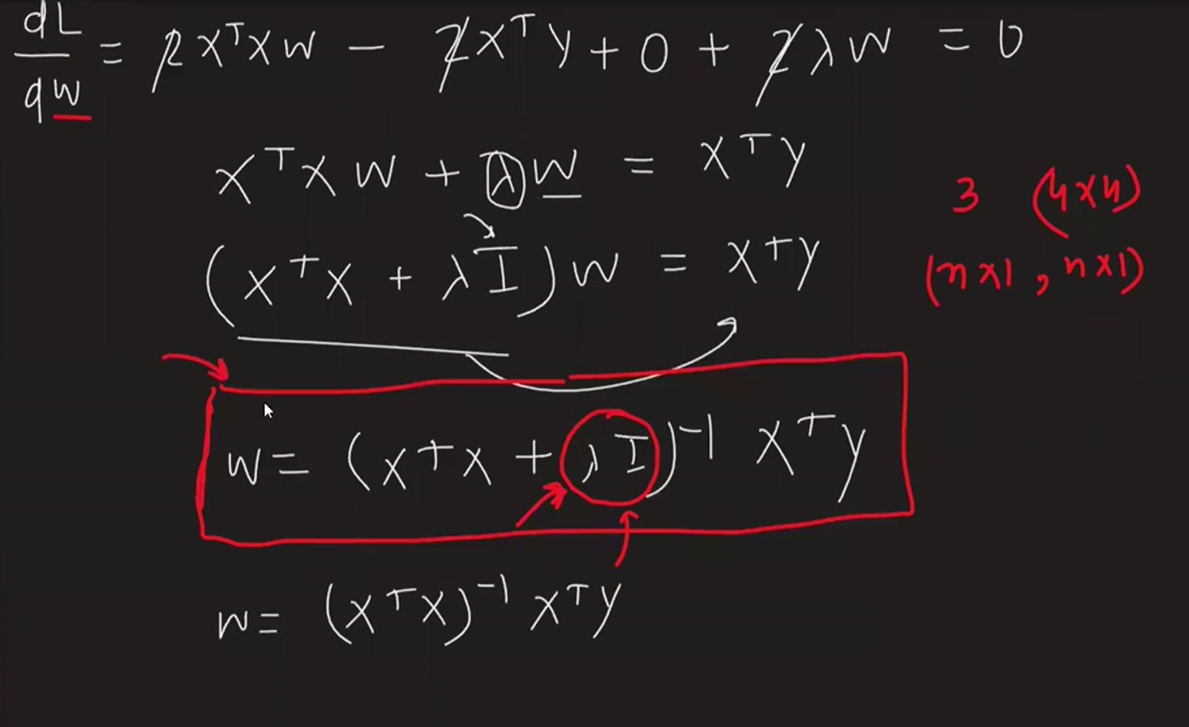 dL/dw = 2XᵀXw − 2Xᵀy + 0 + 2λw = 0
XᵀXw + λw = Xᵀy
3 (4×4)
(XᵀX + λI)w = Xᵀy
(n×1, n×1)
w = (XᵀX + λI)⁻¹ Xᵀy
w = (XᵀX)⁻¹ Xᵀy